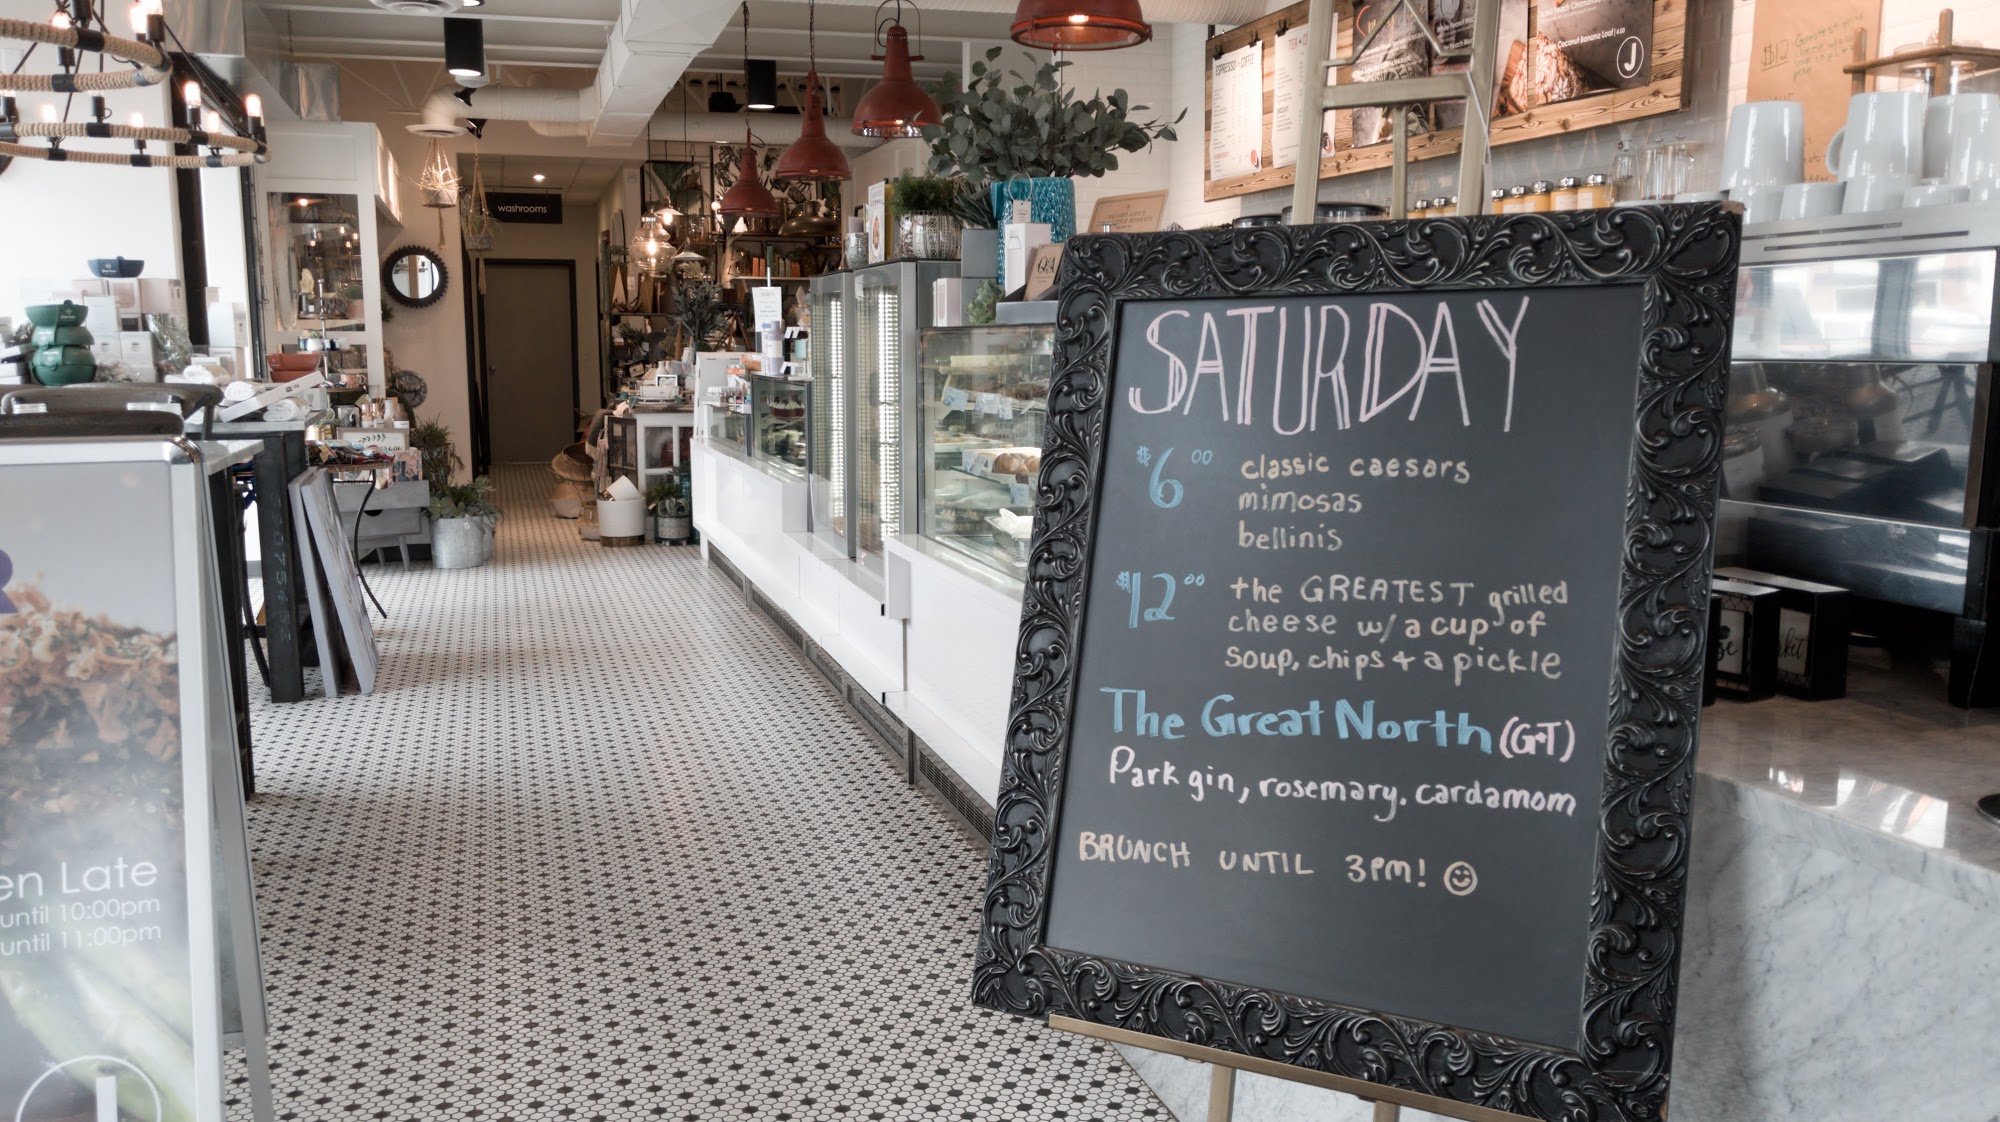 washrooms
ESPRESSO + COFFEE
Coconut Banana Loaf | 4.00
J
SATURDAY
$6.00 classic caesars
mimosas
bellinis
$12.00 the GREATEST grilled
cheese w/ a cup of
soup, chips + a pickle
The Great North (G+T)
Park gin, rosemary, cardamom
BRUNCH UNTIL 3PM!
en Late
until 10:00pm
until 11:00pm